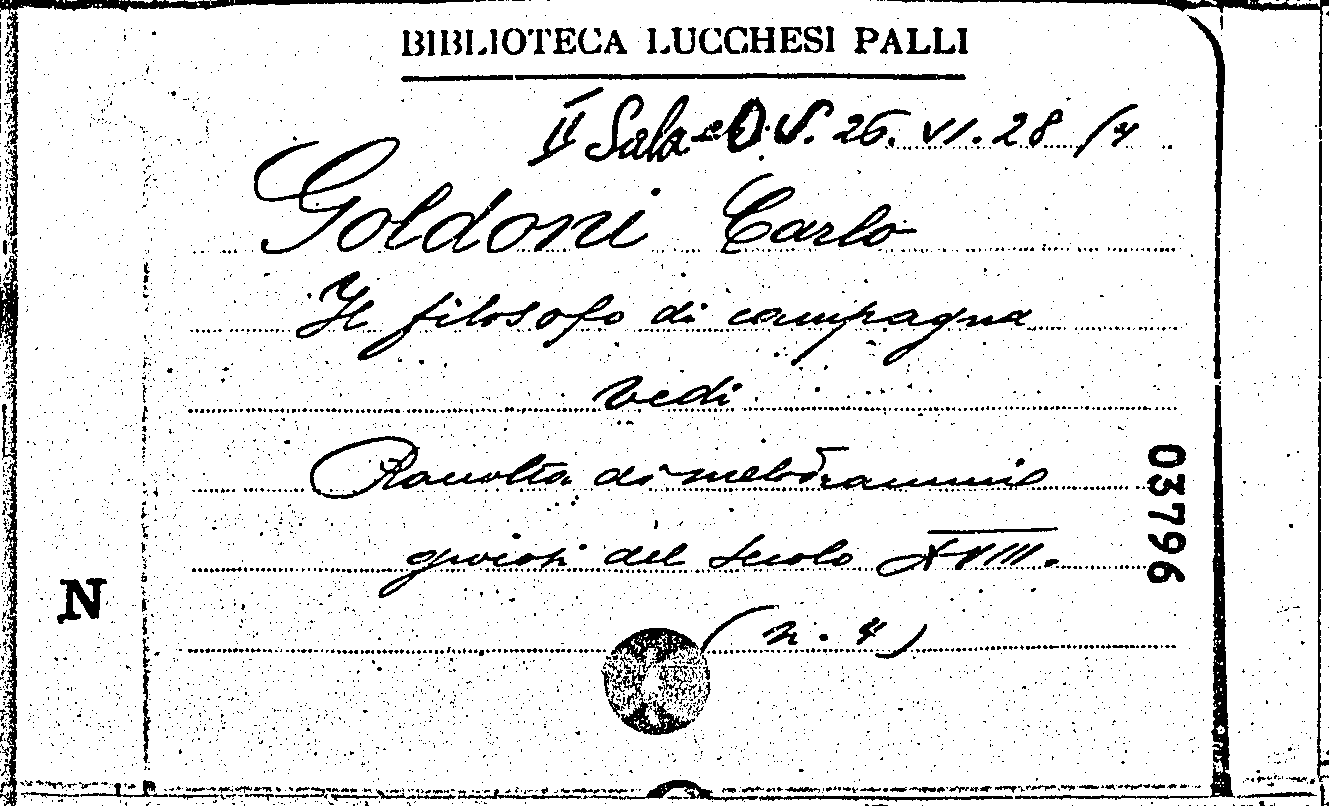 BIBLIOTECA LUCCHESI PALLI
II Sala 26. VI. 28 /4
Goldoni Carlo
Il filosofo di campagna
vedi
Raccolta di melodrammi
giocosi del secolo XVIII.
(n. 4)
N
03796